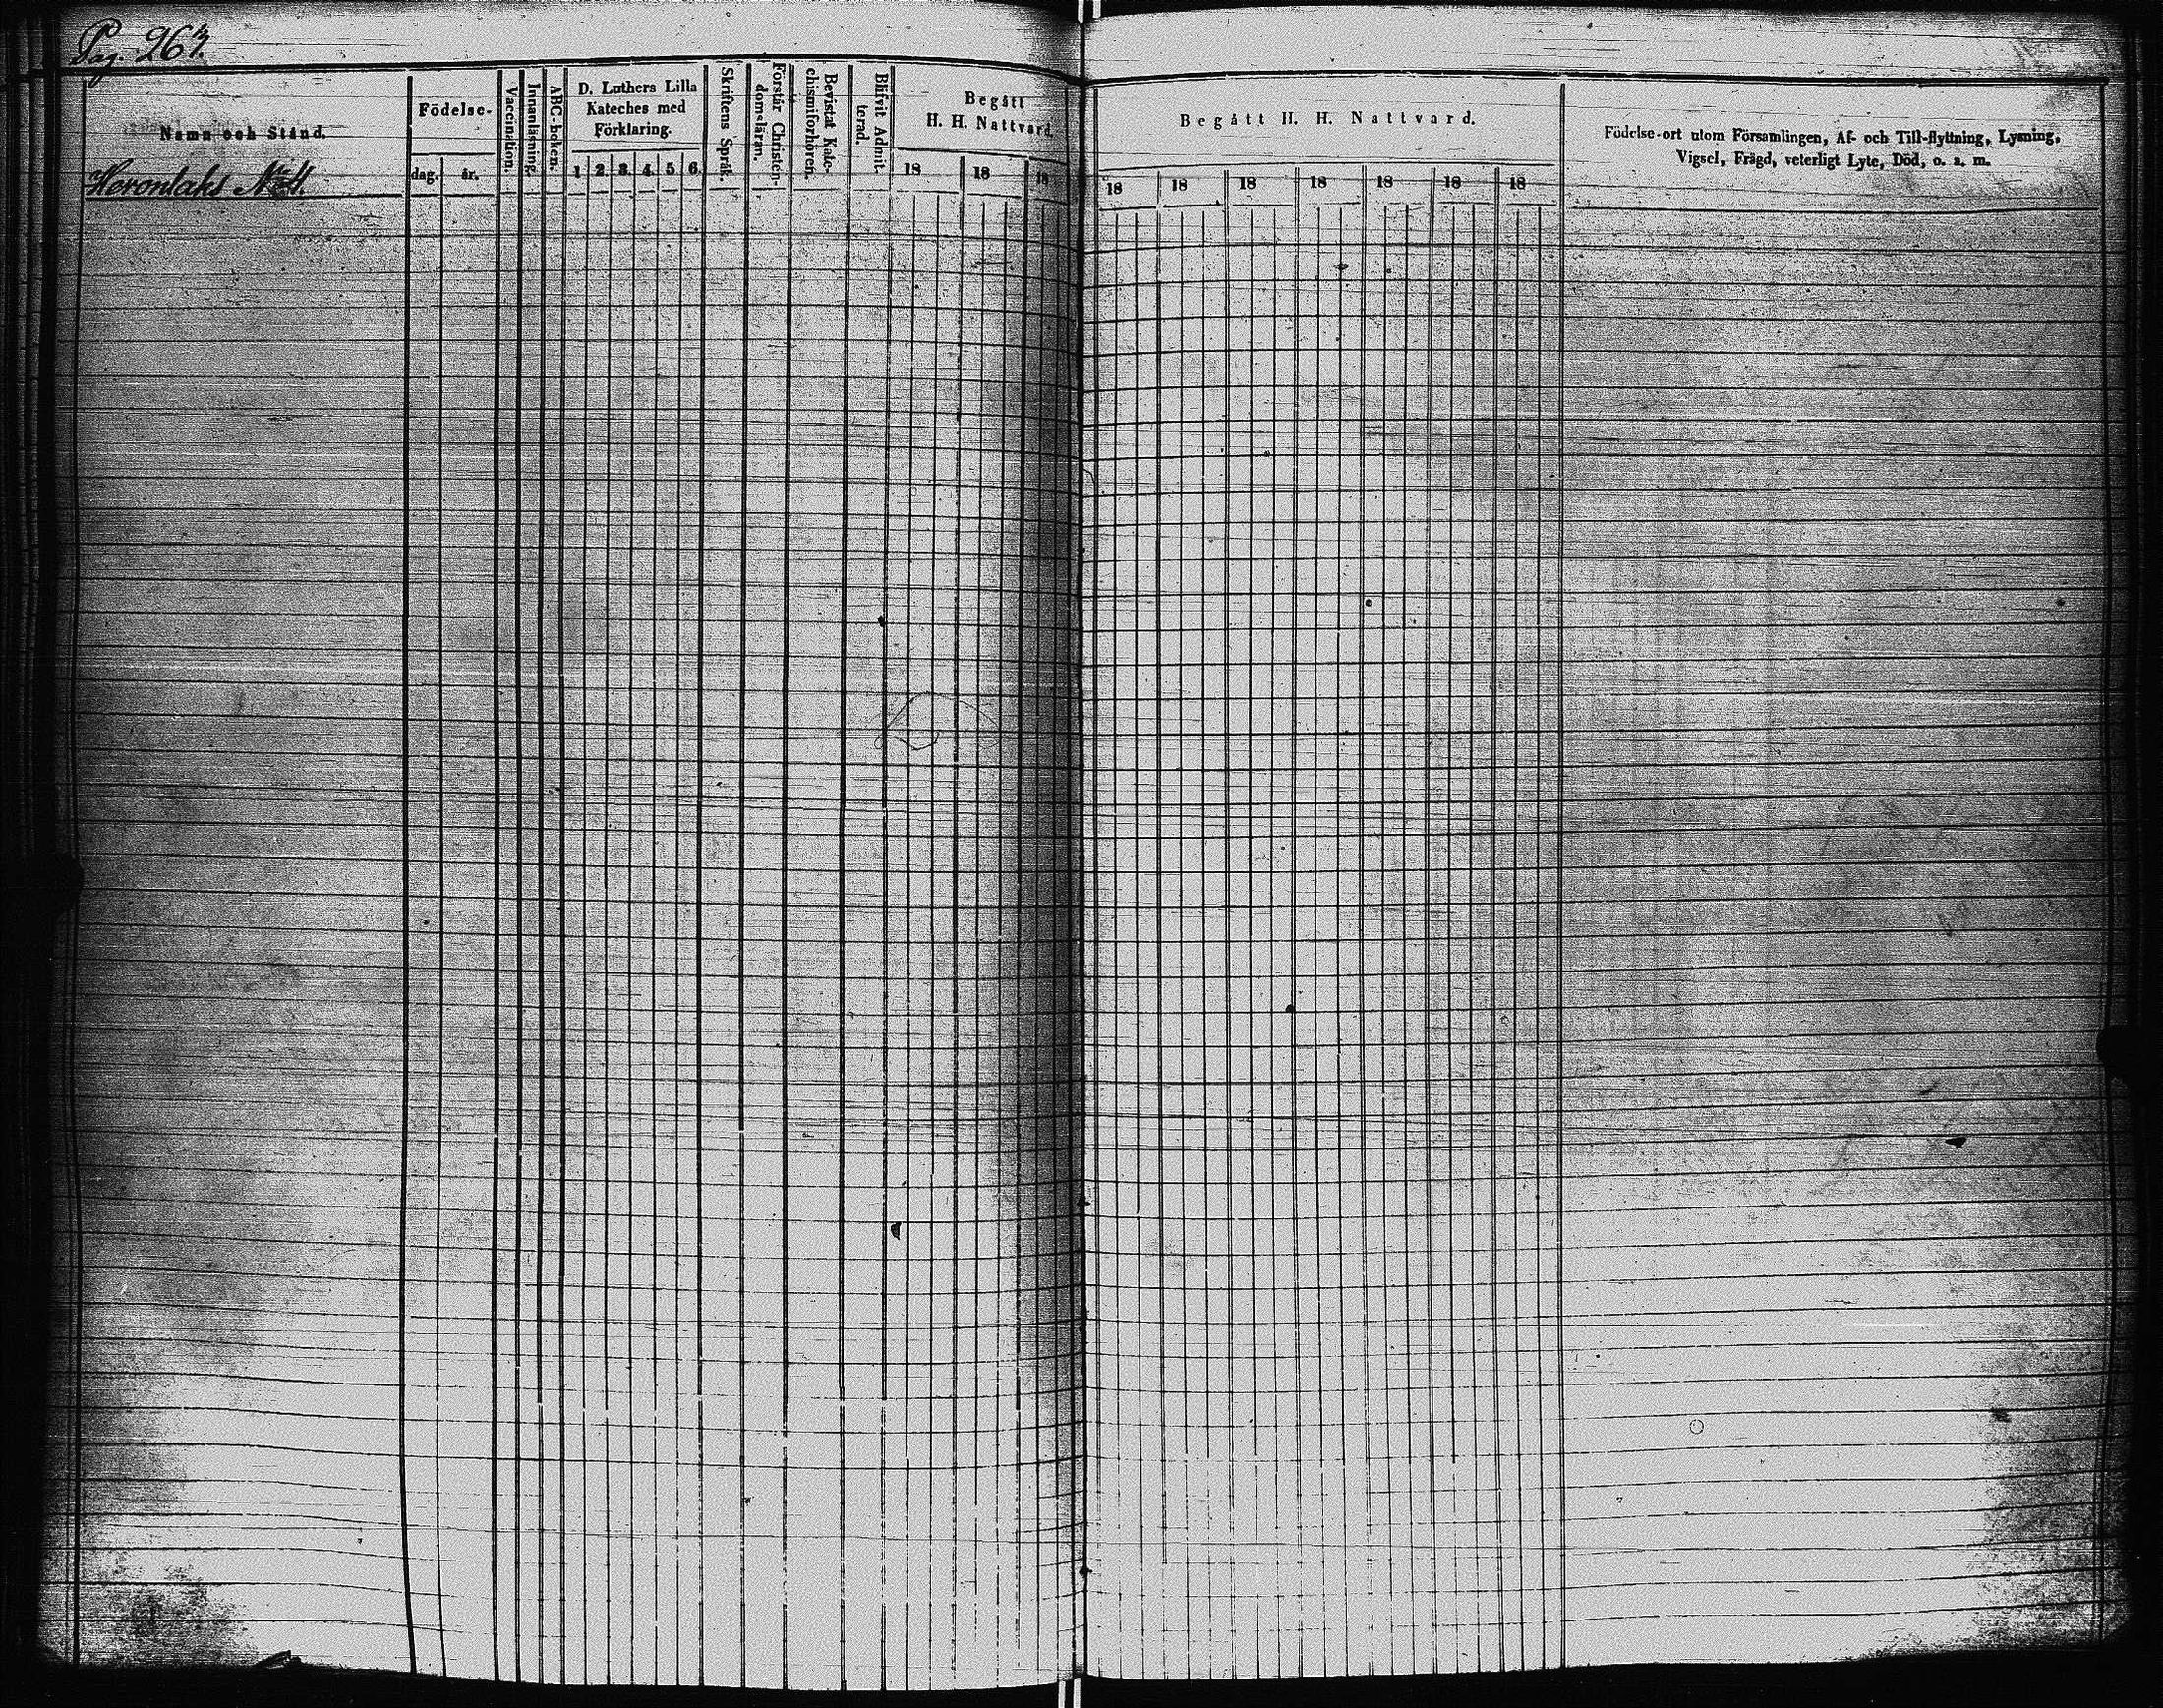 Pag. 267.
Namn och Stånd.
Födelse-
dag.
år.
Vaccination.
Innanläsning.
ABC-boken.
D. Luthers Lilla
Kateches med
Förklaring.
1 2 3 4 5 6
Skriftens Språk.
Förstår Christen-
domsläran.
Bevistat Kate-
chismiförhören.
Blifvit Admit-
terad.
Begått
H. H. Nattvard.
18 18 18
Begått H. H. Nattvard.
18 18 18 18 18 18 18
Födelse-ort utom Församlingen, Af- och Till-flyttning, Lysning,
Vigsel, Frägd, veterligt Lyte, Död, o. s. m.
Heronlaks No 4.